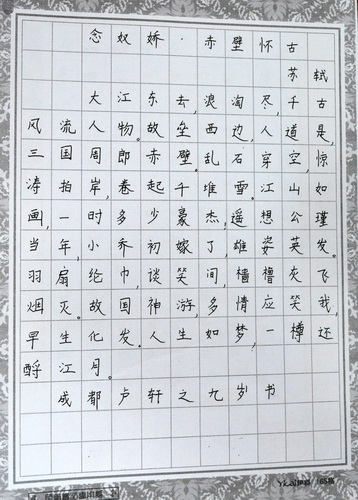 念奴娇·赤壁怀古
苏轼
大江东去,浪淘尽,千古
风流人物。故垒西边,人道是,
三国周郎赤壁。乱石穿空,惊
涛拍岸,卷起千堆雪。江山如
画,一时多少豪杰,遥想公瑾
当年,小乔初嫁了,雄姿英发。
羽扇纶巾,谈笑间,樯橹灰飞
烟灭。故国神游,多情应笑我,
早生化发。人生如梦,一樽还
酹江月。
成都卢轩之九岁书